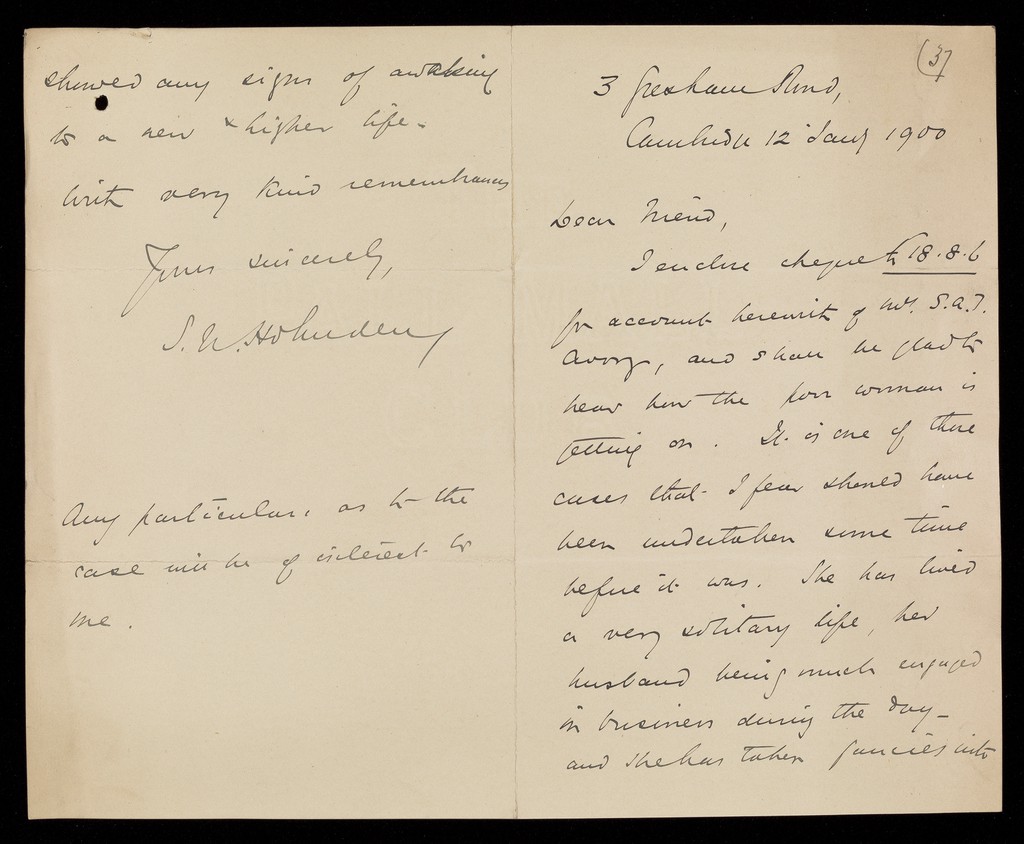 (3)
3 Gresham Road,
Cambridge 12 Jany 1900
Dear Friend,
I enclose cheque £18.8.6
for account herewith of Mrs. S.A.T.
Avory, and shall be glad to
hear how the poor woman is
getting on. It is one of those
cases that I fear should have
been undertaken some time
before it was. She has lived
a very solitary life, her
husband being much engaged
in business during the day -
and she has taken fancies into
showed any signs of awaking
to a new & higher life.
With very kind remembrances
Yours sincerely,
S.
Any particulars as to the
case will be of interest to
me.